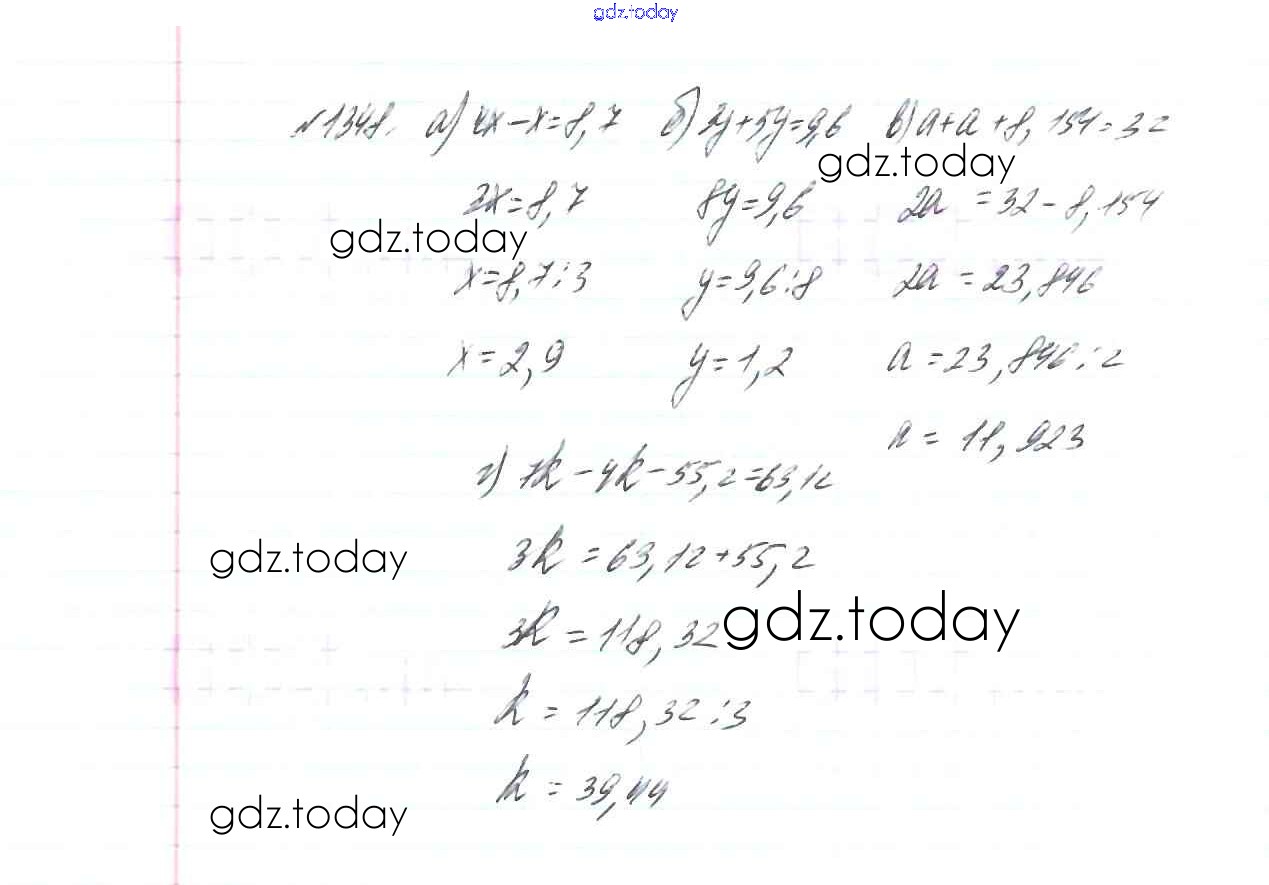 gdz.today
№1348. а) 4x-x=8,7 б) 3y+5y=9,6 в) a+a+8,154=32
gdz.today
3x=8,7 8y=9,6 2a=32-8,154
gdz.today
x=8,7:3 y=9,6:8 2a=23,846
x=2,9 y=1,2 a=23,846:2
a=11,923
г) 7k-4k-55,2=63,12
gdz.today
3k=63,12+55,2
gdz.today
3k=118,32
k=118,32:3
k=39,44
gdz.today